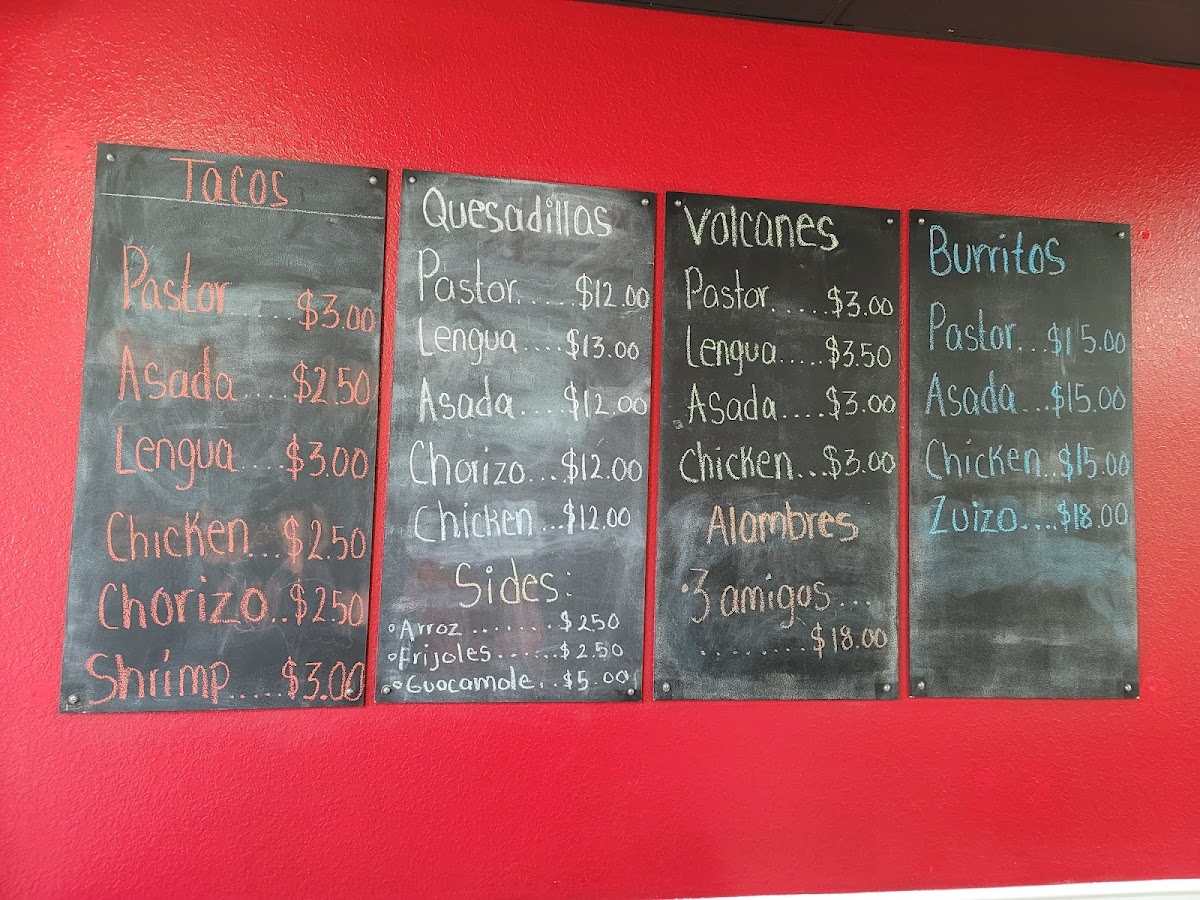 Tacos
Pastor ...... $3.00
Asada .... $2.50
Lengua .... $3.00
Chicken... $2.50
Chorizo.. $2.50
Shrimp..... $3.00
Quesadillas
Pastor...... $12.00
Lengua.... $13.00
Asada.... $12.00
Chorizo... $12.00
Chicken... $12.00
Sides:
Arroz ........ $2.50
Frijoles ....... $2.50
Guacamole.. $5.00
Volcanes
Pastor...... $3.00
Lengua..... $3.50
Asada.... $3.00
Chicken... $3.00
Alambres
3 amigos ...
......... $18.00
Burritos
Pastor... $15.00
Asada... $15.00
Chicken.. $15.00
Zuizo.... $18.00